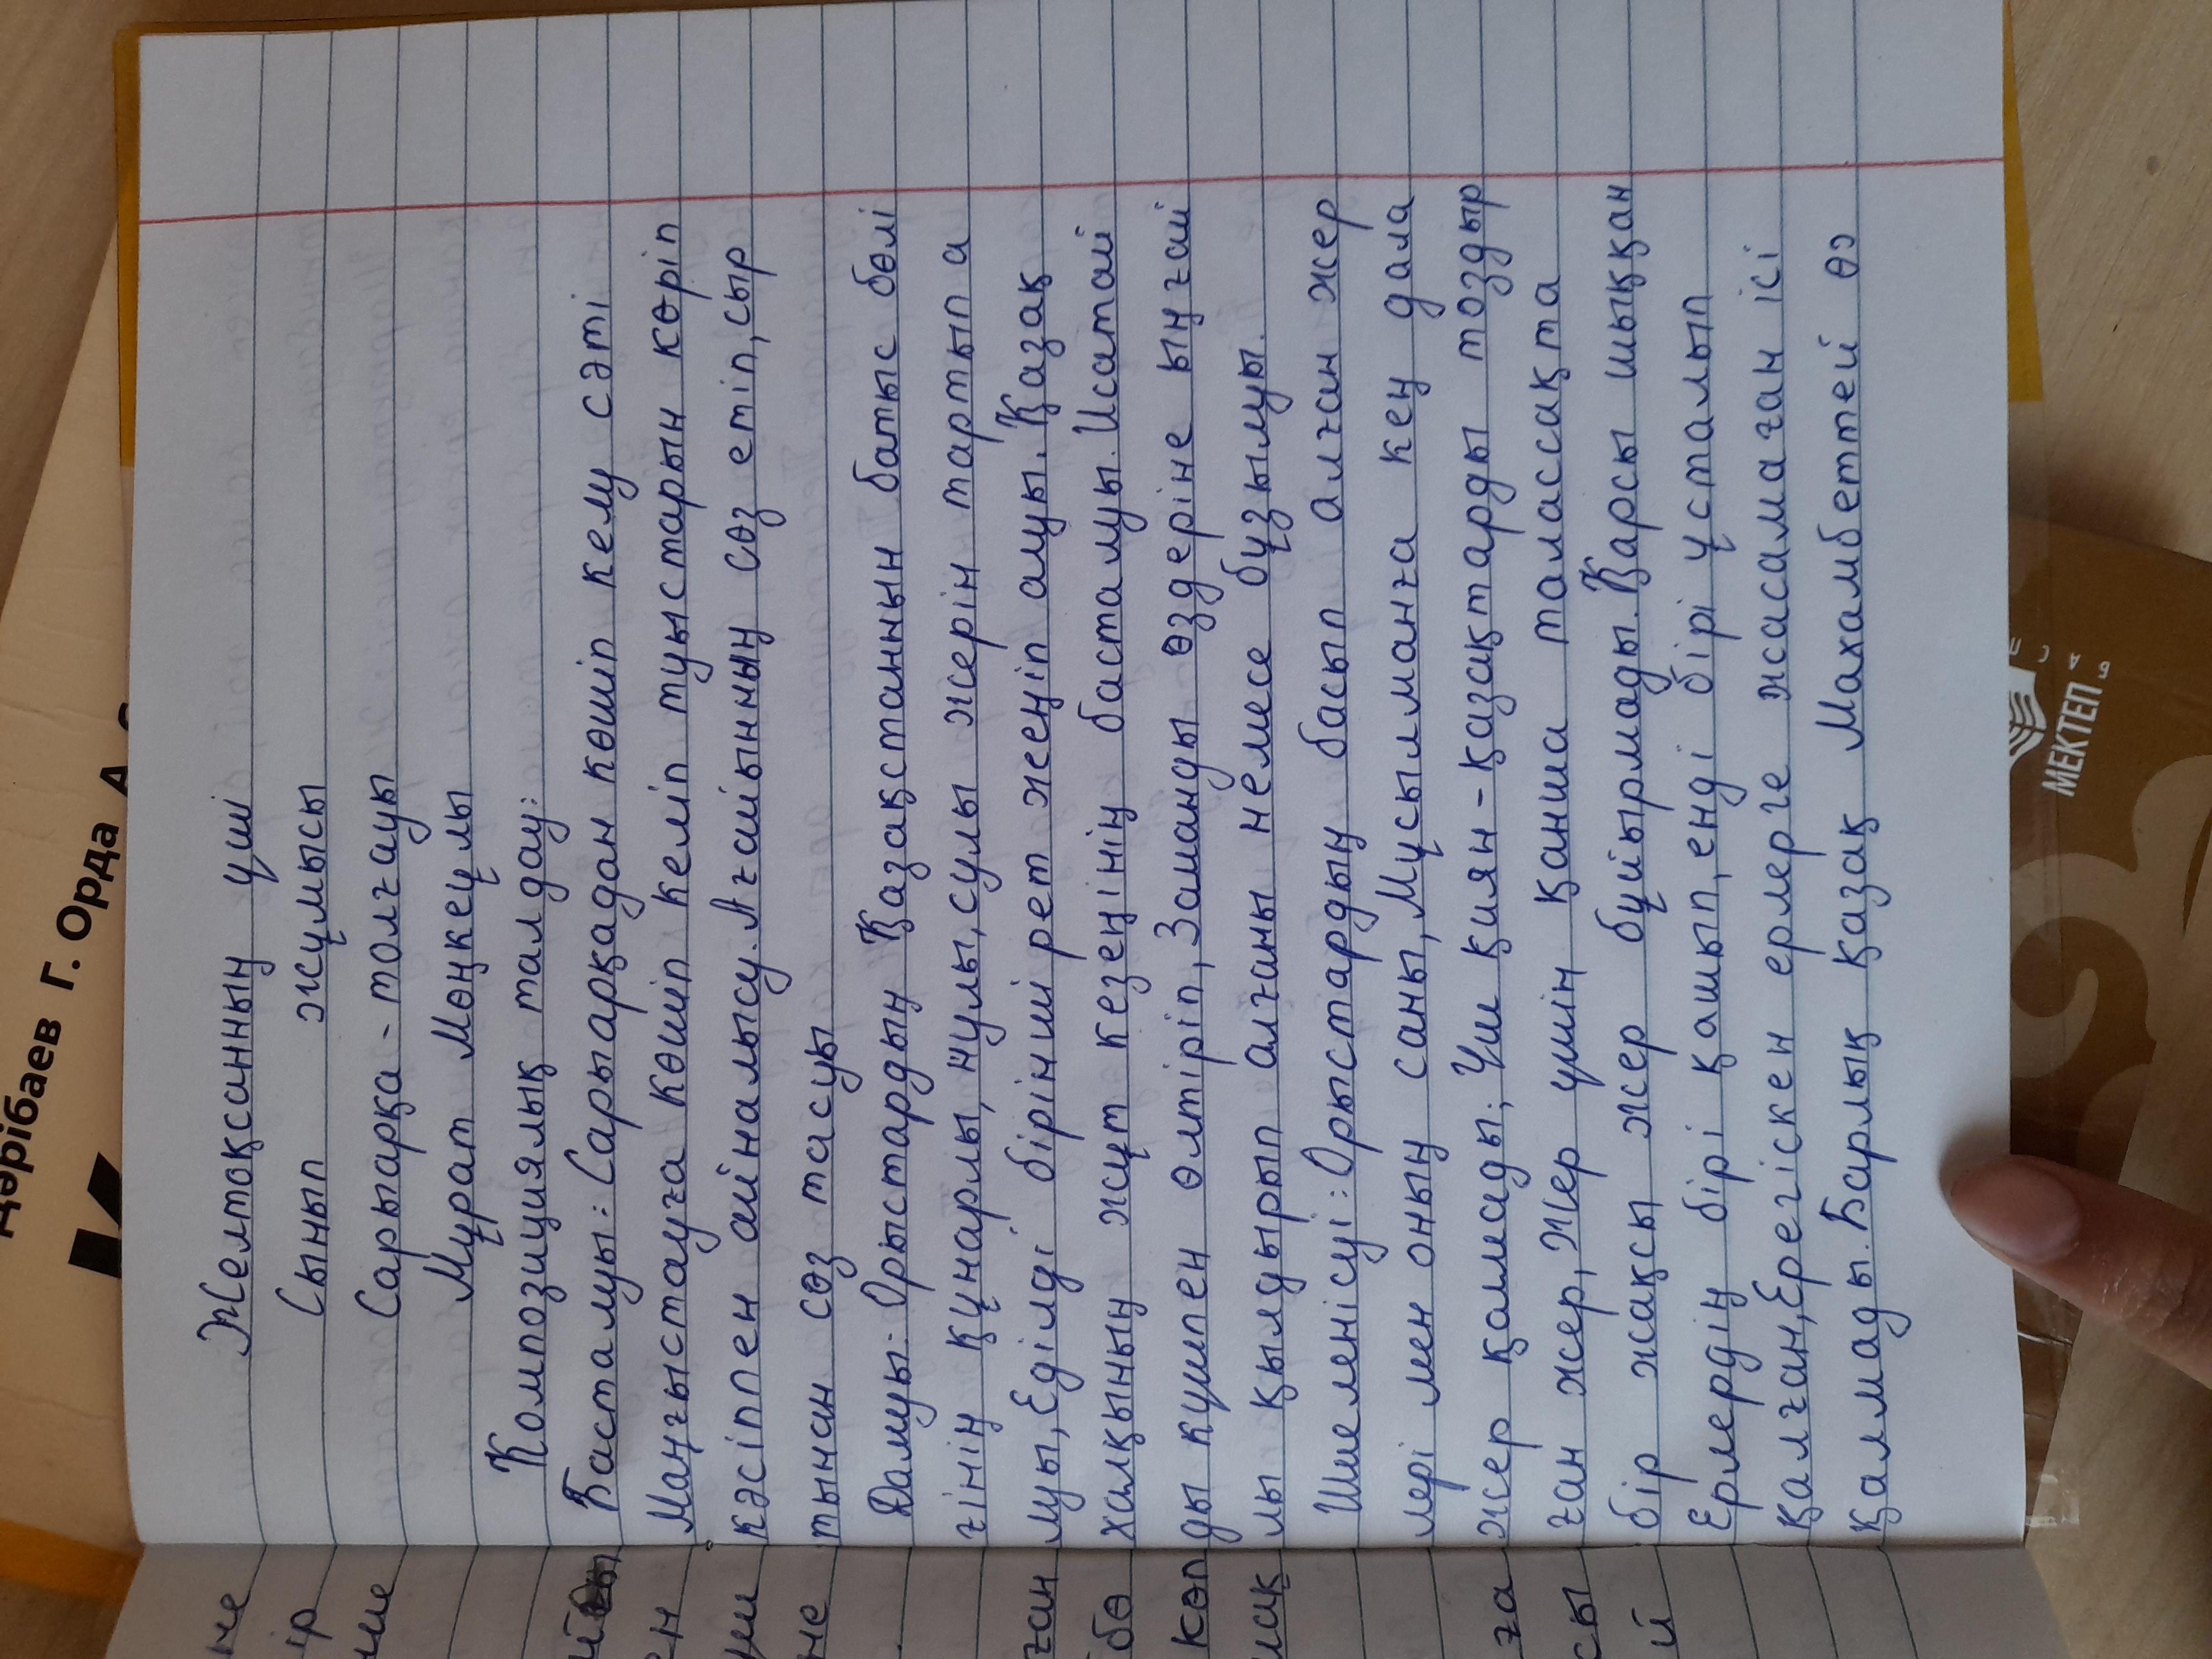 Желтоқсанның үші
Сынып жұмысы
Сарыарқа-толғауы
Мұрат Мөңкеұлы
Композициялық талдау:
Басталуы: Сарыарқадан көшіп келу сәті
Маңғыстауға көшіп келіп туыстарын көріп
кәсіппен айналысу. Ағайынның сөз етіп, сыр
тынан сөз тасуы
Дамуы: Орыстардың Қазақстанның батыс бөлі
гінің құнарлы, нулы, сулы жерін тартып а
луы, Еділді бірінші рет жеңіп алуы. Қазақ
халқының жұт кезеңінің басталуы. Исатай
ды күшпен өлтіріп, Заманды өздеріне ыңғай
лы қылдырып алғаны немесе бұзылуы.
Шиеленісуі: Орыстардың басып алған жер
лері мен оның саны, Мұсылманға кең дала
жер қалмады; Үш қиян-қазақтарды тоздыр
ған жер, Жер үшін қанша талассақта
бір жақсы жер бұйырмады. Қарсы шыққан
Ерлердің бірі қашып, енді бірі ұсталып
қалған, Ерегіскен ерлерге жасамаған ісі
қалмады. Барлық қазақ Махамбеттей өз
не
ір
ен
үш
не
ған
бө
көп
ға
сы
й
Дәрібаев Г. Орда
МЕКТЕП